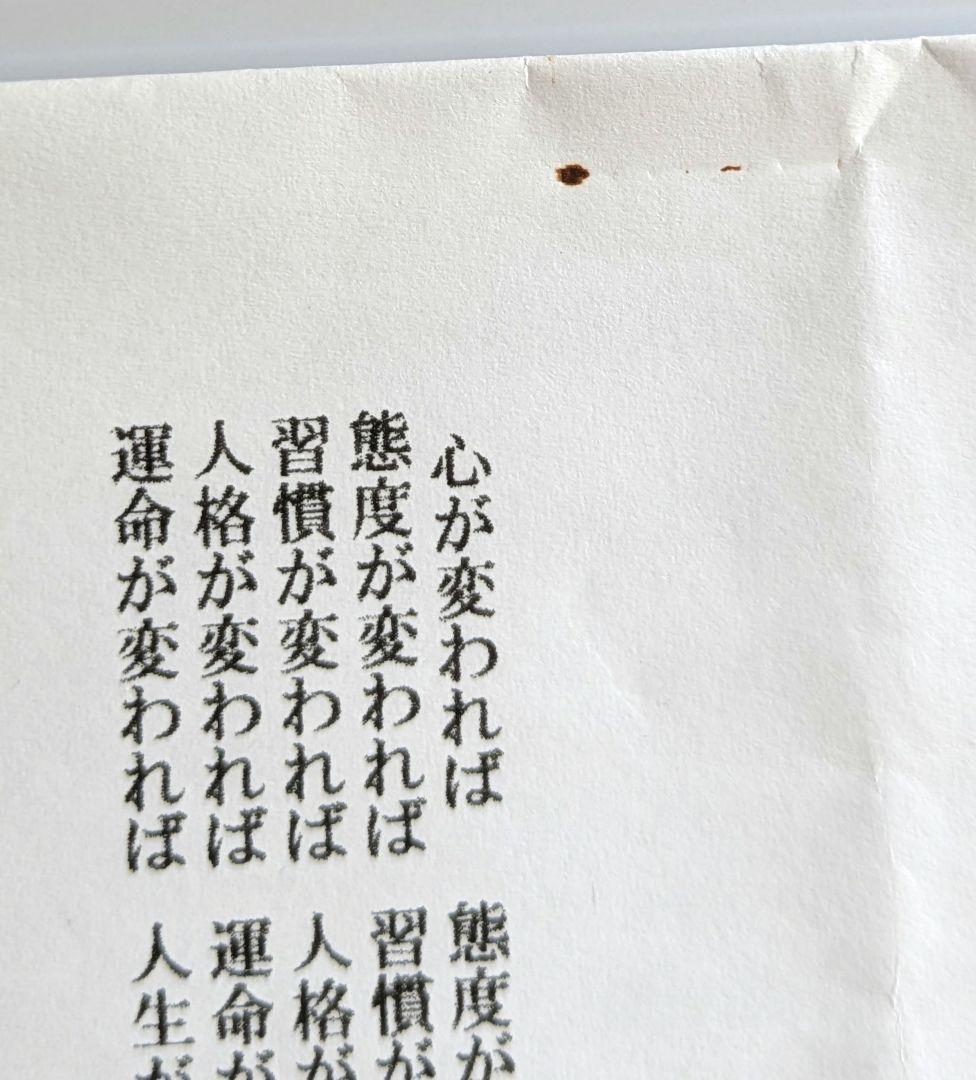 心が変われば　態度が
態度が変われば　習慣が
習慣が変われば　人格が
人格が変われば　運命が
運命が変われば　人生が